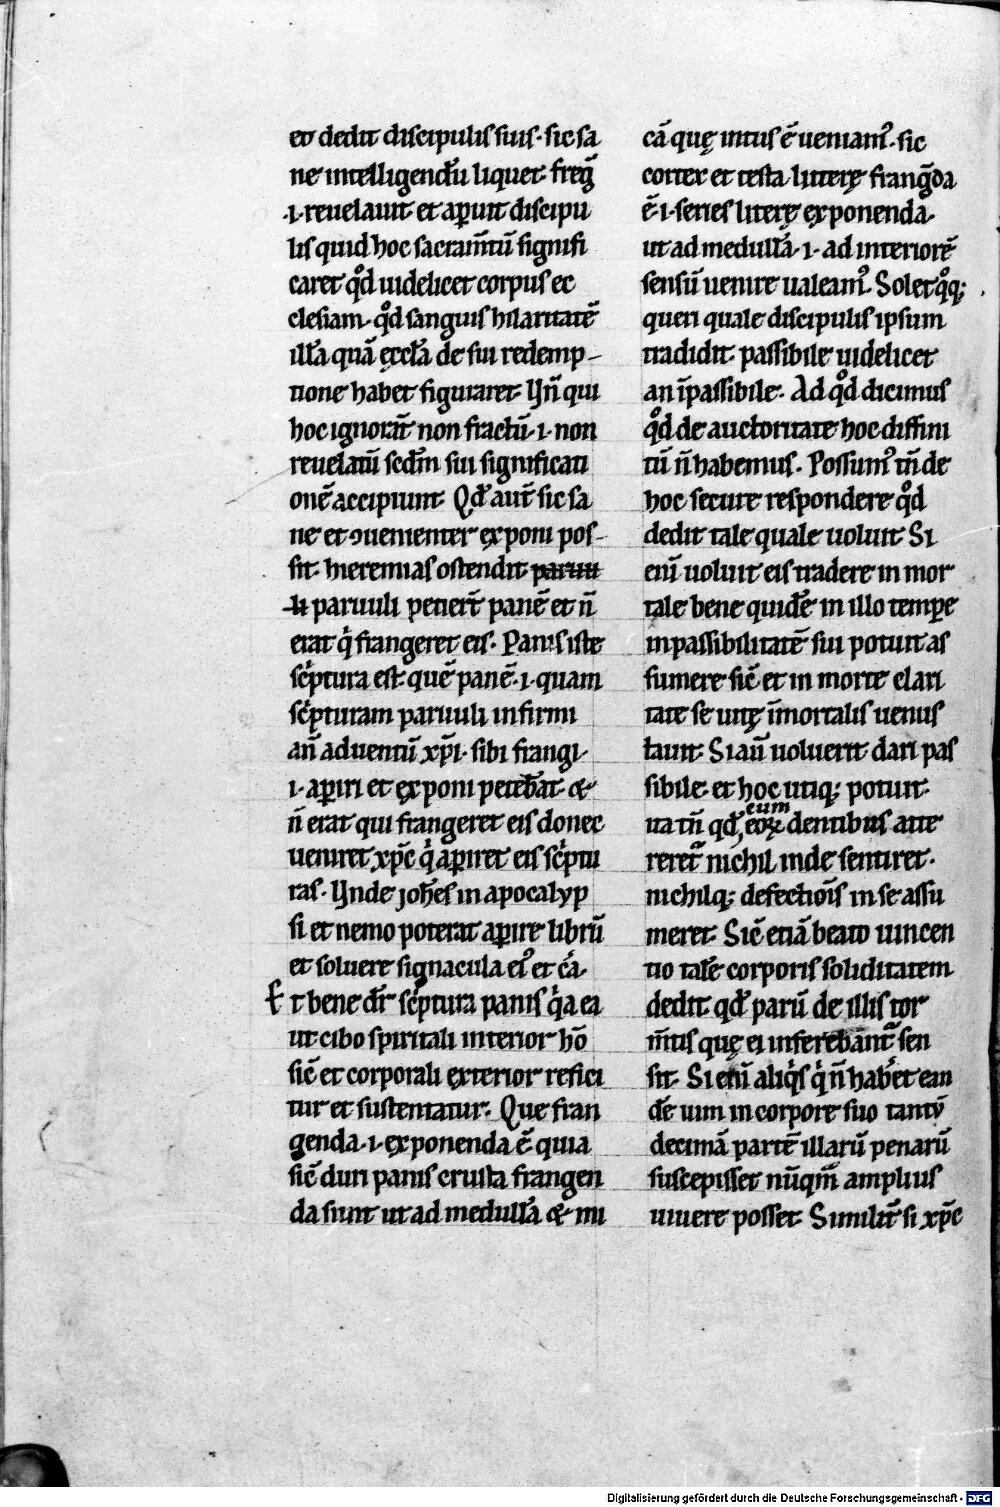 et dedit discipulis suis. sic sa
ne intelligendū liquet. freḡ
.i. reuelauit et aꝑuit discipu
lis quid hoc sacram̄tū signifi
caret qͦd uidelicet corpus ec
clesiam. qͦd sanguis hilaritatē
ill̄a quā ęccl̄a de sui redemp-
tione habet figuraret. Un̄ qui
hoc ignorāt non fractū .i. non
reuelatū sed̄m sui significati
onē accipiunt. Qd̄ aut̄ sic sa
ne et ꝯuenienter exponi pos-
sit. hieremias ostendit paruu
li paruuli petier̄t panē et n̄
erat qͥ frangeret eis. Panis iste
scͥptura est. quē panē .i. quam
scͥpturam paruuli infirmi
an̄ aduentū xp̄i. sibi frangi.
.i. aꝑiri et exponi peteb̄at. &
n̄ erat qui frangeret eis donec
ueniret xp̄c qͥ aꝑiret eis scͥptu
ras. Unde joh̄es in apocalyp
si et nemo poterat aꝑire librū
et soluere signacula ei᾿ et c̄a.
Et bene dr̄ scͥptura panis qͥa ea
ut cibo spiritali interior hō
sic̄ et corporali exterior refici
tur et sustentatur. Que fran
genda .i. exponenda ē quia
sic̄ duri panis crusta frangen
da sunt ut ad medull̄a & mi
cā quę intus ē ueniam᾿. sic
cortex et testa litterę frangēda
ē .i. series literę exponenda.
ut ad medull̄a .i. ad interiorē
sensū uenire ualeam᾿. Solet qͦq;
queri quale discipulis ipsum
tradidit. passibile uidelicet
an īpassibile. Ad qͦd dicimus
qͦd de auctoritate hoc diffini
tū n̄ habemus. Possum᾿ tn̄ de
hoc secure respondere qͦd
dedit tale quale uoluit. Si
eni᷑ uoluit eis tradere in mor
tale bene quid̄e in illo temꝑe
inpassibilitatē sui potuit as
sumere sic̄ et in morte clari
tate se uitę īmortalis uenus
tauit. Si aū uoluerit dari pas
sibile. et hoc utiq; potuit.
ita tn̄ qd̄, eoꝝ dentibus atte
eum
reret᷑ nichil inde sentiret.
nichilq; defectiōis in se assu
meret. Sic̄ etiā beato uincen
tio tal̄e corporis soliditatem
dedit. qd̄ parū de illis tor
m̄tis quę ei inferebant᷑ sen
sit. Si eni᷑ aliqͥs qͥ n̄ hab̄et ean
d̄e uim in corpore suo tantū
decimā partē illarū penarū
suscepisset nūqm̄ amplius
uiuere posset. Similit̄ si xp̄c